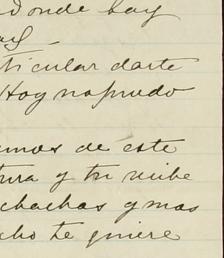 donde hay
ticular darte
Hoy no puedo
amos de este
tura y tu recibe
chachas y mas
cho te quiere